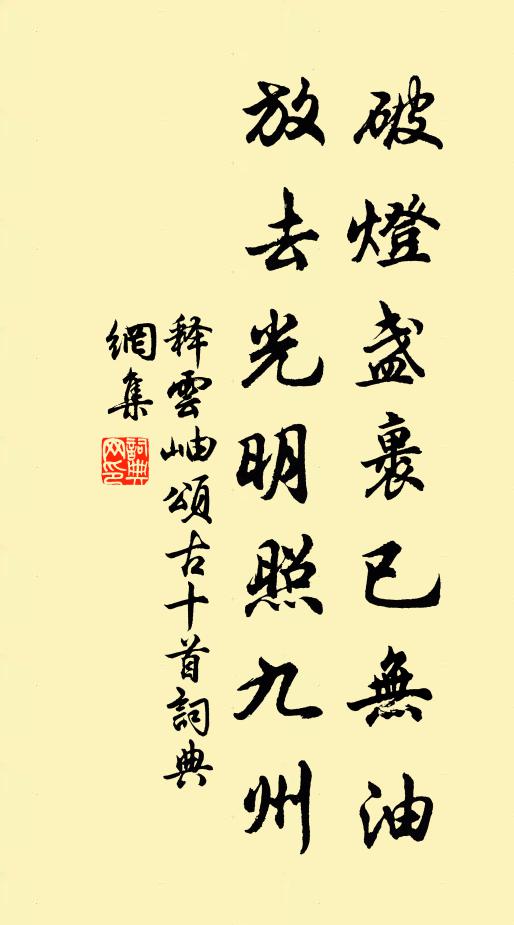 破燈盞裹已無油
放去光明照九州
释雲岫頌古十首詞典
網集
詞典
网印